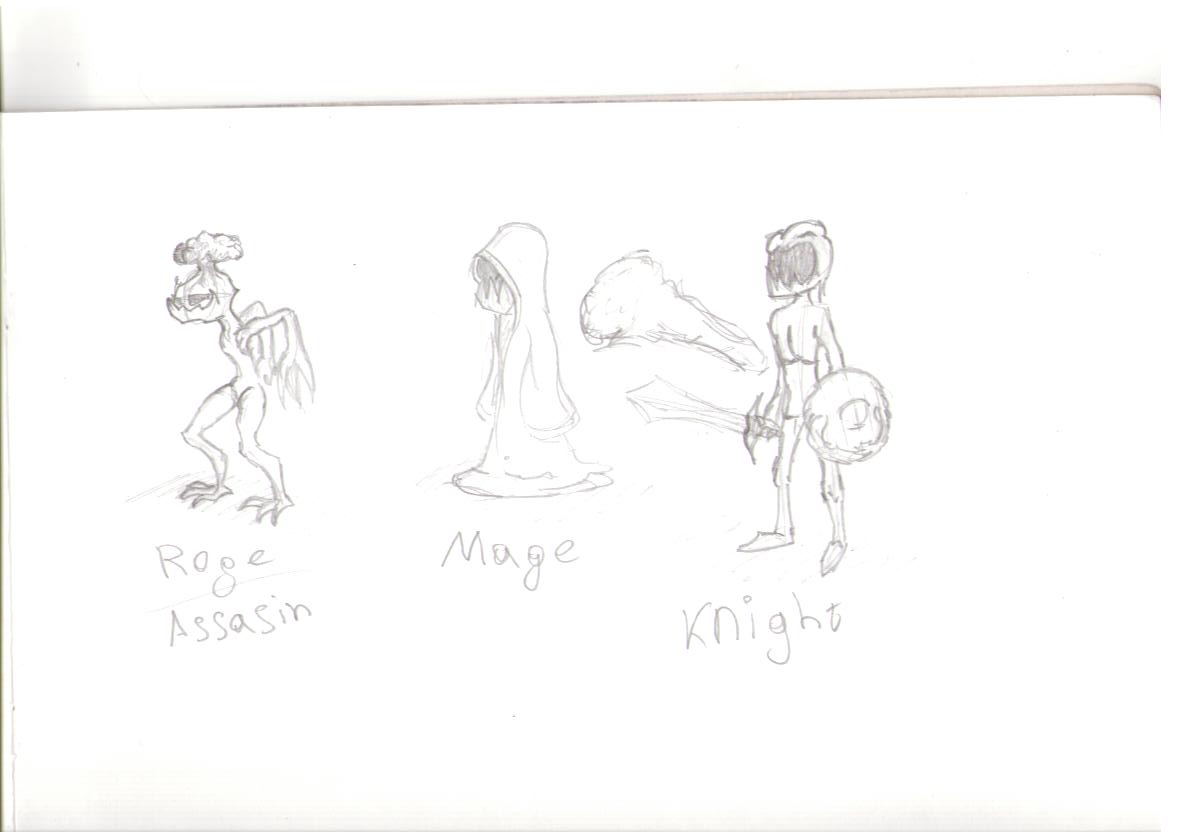 Roge
Assasin
Mage
Knight